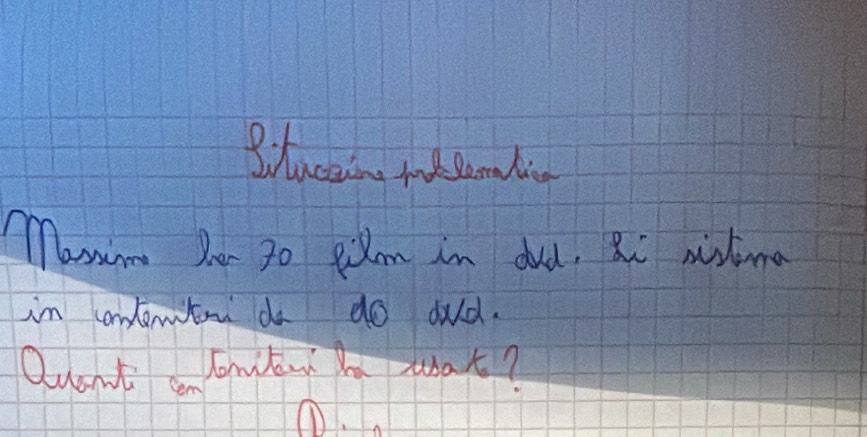 Situazione problematica
Massimo ha 70 film in dvd. Li sistema
in contenitori da 10 dvd.
Quanti contenitori ha usato?